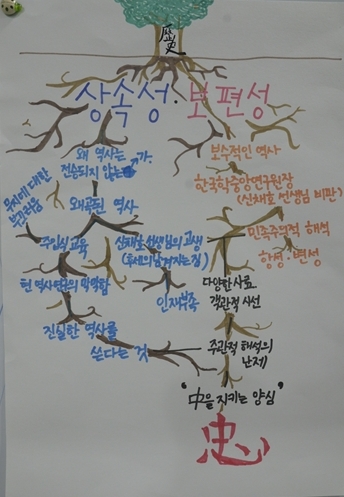 歷史
상속성·보편성
왜 역사는
전승되지 않는가.
보수적인 역사
무지에 대한
부끄러움
왜곡된 역사
한국학중앙연구원장
(신채호 선생님 비판)
주입식 교육
신채호 선생님의 고생
(후세의 남겨지는 짐)
민족주의적 해석
항성·변성
현 역사연구의 막막함
인재부족
다양한 사료
객관적 시선
진실한 역사를
쓴다는 것
주관적 해석의
난제
'中을 지키는 양심'
忠